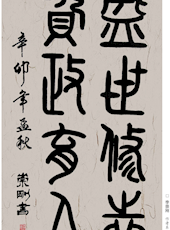 盛世修志
資政育人
辛卯年孟秋
崇剛書